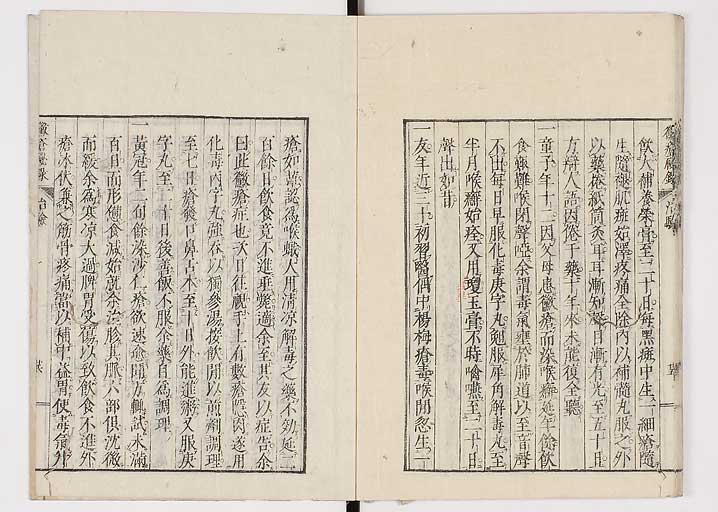 飲大補養榮膏至二十日每黑斑中生一細瘡隨
生隨礙肌斑如澤疼痛全除內以補髓丸服之外
以藥捲紙筒灸耳耳漸知聲目漸有光至五十日
方辯人語因倦于藥十年來未能復全聽
一童子年十二因父母患黴瘡而染喉癬延年餘飲
食艱難喉閉聲啞余謂毒氣壅於肺道以至音聲
不出每日早服化毒庚字丸勉服犀角解毒丸至
半月喉癬始痊又用瓊玉膏不時噙嚥至二十日
聲出如昔
一友年近三十初習醫偶中楊梅瘡毒喉間忽生一
瘡如蕈認爲喉蛾大用清涼解毒之藥不効延二
百餘日飲食竟不進垂斃適余至其友以症告余
曰此黴瘡症也次日往觀手上有數瘡陷肉遂用
化毒丙字丸強吞以獨參湯接飲間以煎劑調理
至七日瘡發口鼻古木至十日外能進粥又服庚
字丸至二十日後善飯不服余藥自爲調理
一黃冠年二旬餘染沙仁瘡欲速愈聞方輒試未滿
百日而形㾪食減始就余治診其脈六部俱沈微
而緩余爲寒涼太過脾胃受傷以致飲食不進外
瘡冰伏兼之筋骨疼痛當以補中益胃使毒氣外